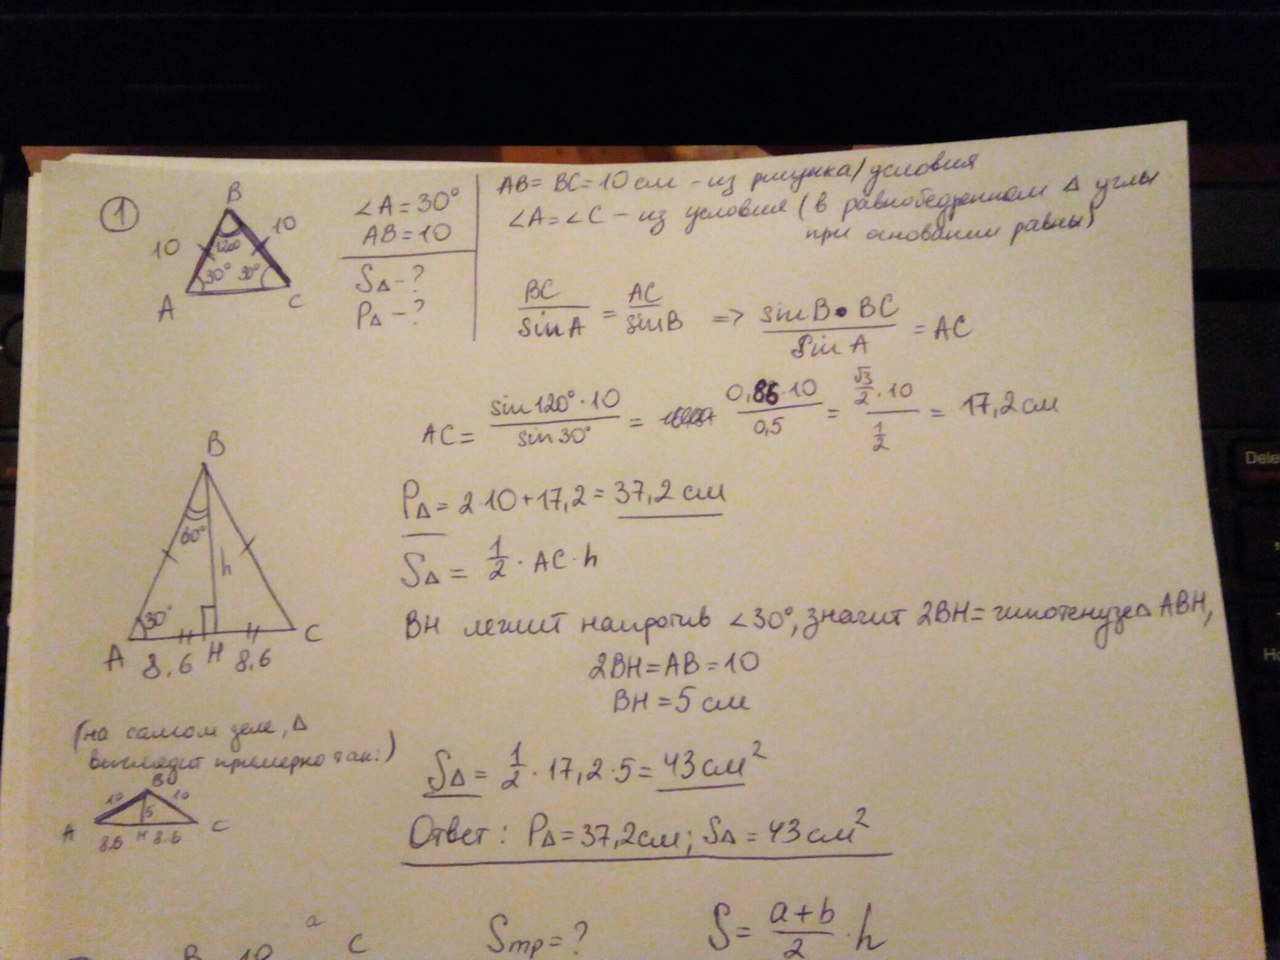 1
B
10 10
120°
30° 30°
A C
∠A = 30°
AB = 10
S∆ - ?
P∆ - ?
AB = BC = 10 см - из рисунка/условия
∠A = ∠C - из условия (в равнобедренном ∆ углы
при основании равны)
BC/sinA = AC/sinB => sinB · BC/sinA = AC
AC = sin120° · 10/sin30° = 0,86 · 10/0,5 = √3/2 · 10/1/2 = 17,2 см
P∆ = 2·10 + 17,2 = 37,2 см
S∆ = 1/2 · AC · h
B
60°
h
30°
A H C
8.6 8.6
BH лежит напротив ∠30°, значит 2BH = гипотенузе ∆ ABH,
2BH = AB = 10
BH = 5 см
(на самом деле, ∆
выглядит примерно так:)
B
10 10
5
A H C
8.6 8.6
S∆ = 1/2 · 17,2 · 5 = 43 см²
Ответ: P∆ = 37,2 см; S∆ = 43 см²
a
B 10 C
Sтр = ?
S = a+b/2 · h
Dele